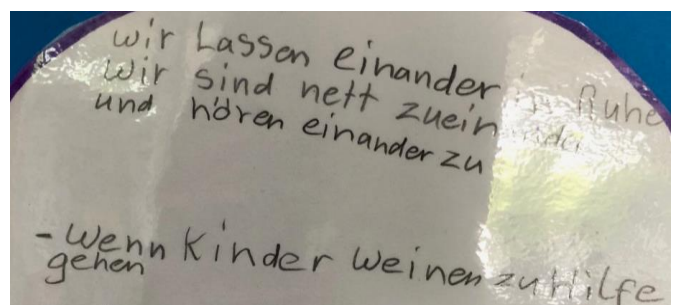 wir Lassen einander in Ruhe
Wir sind nett zueinander
und hören einander zu
- Wenn Kinder weinen zu Hilfe
gehen